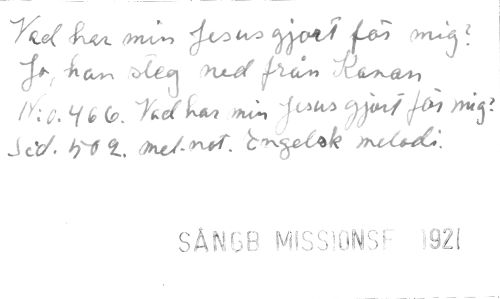 Vad har min Jesus gjort för mig?
Jo, han steg ned från Kanan
N:o. 466. Vad har min Jesus gjort för mig?
Sid. 502. mel. not. Engelsk melodi.
SÅNGB MISSIONSF 1921